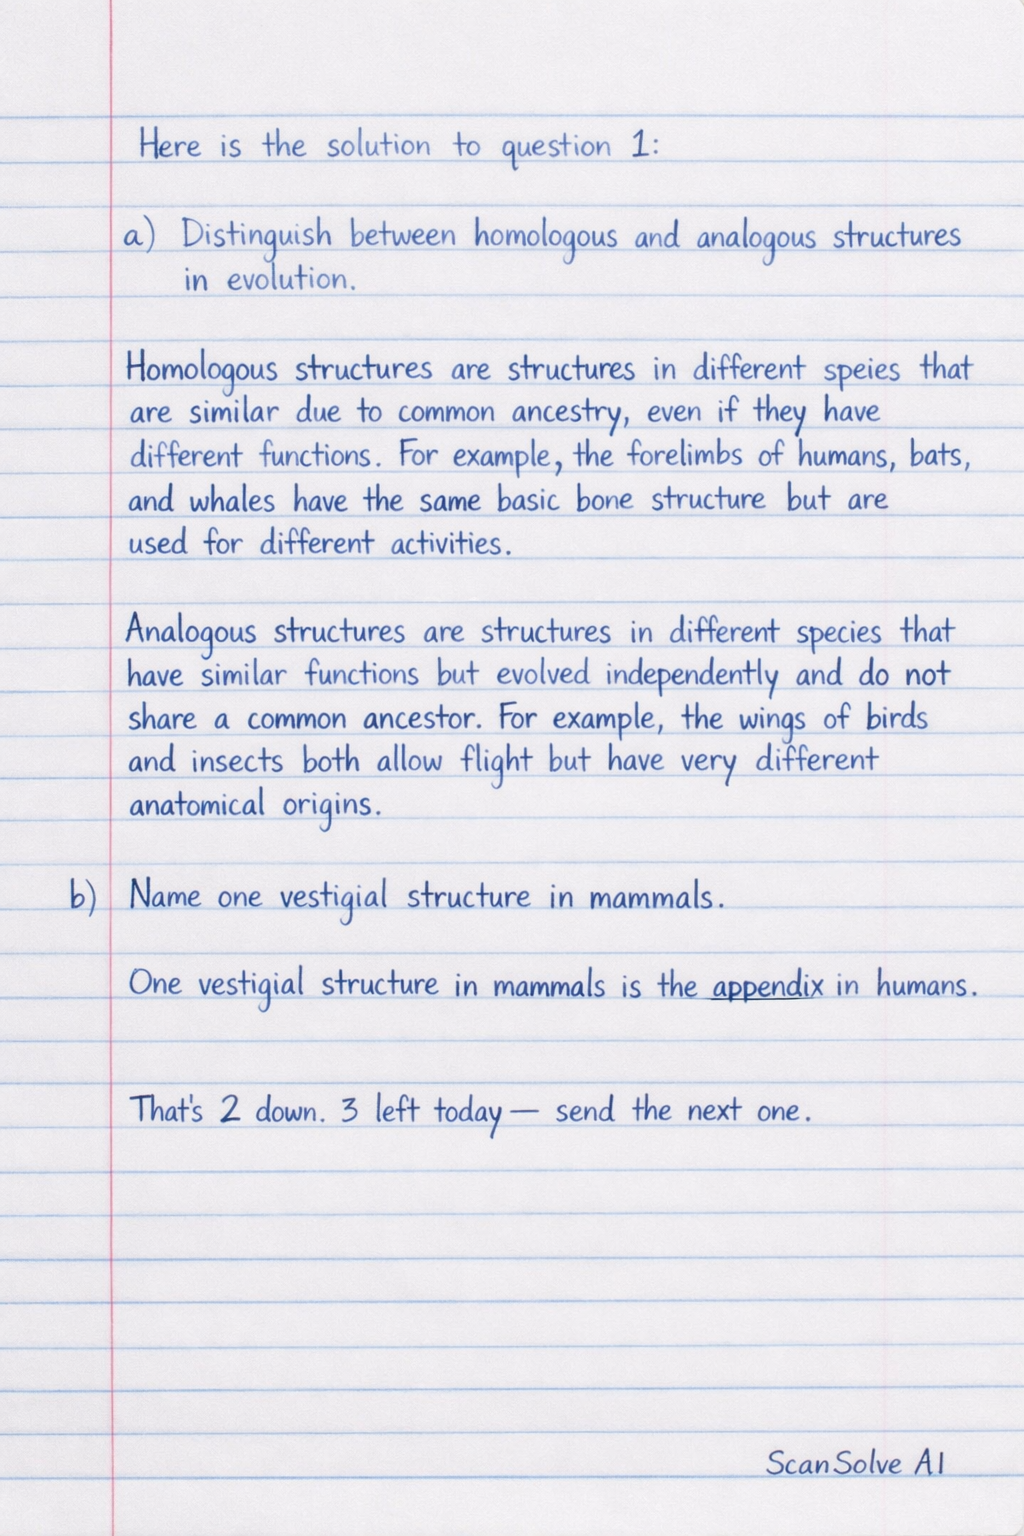 Here is the solution to question 1:
a) Distinguish between homologous and analogous structures
in evolution.
Homologous structures are structures in different speies that
are similar due to common ancestry, even if they have
different functions. For example, the forelimbs of humans, bats,
and whales have the same basic bone structure but are
used for different activities.
Analogous structures are structures in different species that
have similar functions but evolved independently and do not
share a common ancestor. For example, the wings of birds
and insects both allow flight but have very different
anatomical origins.
b) Name one vestigial structure in mammals.
One vestigial structure in mammals is the appendix in humans.
That's 2 down. 3 left today — send the next one.
ScanSolve AI